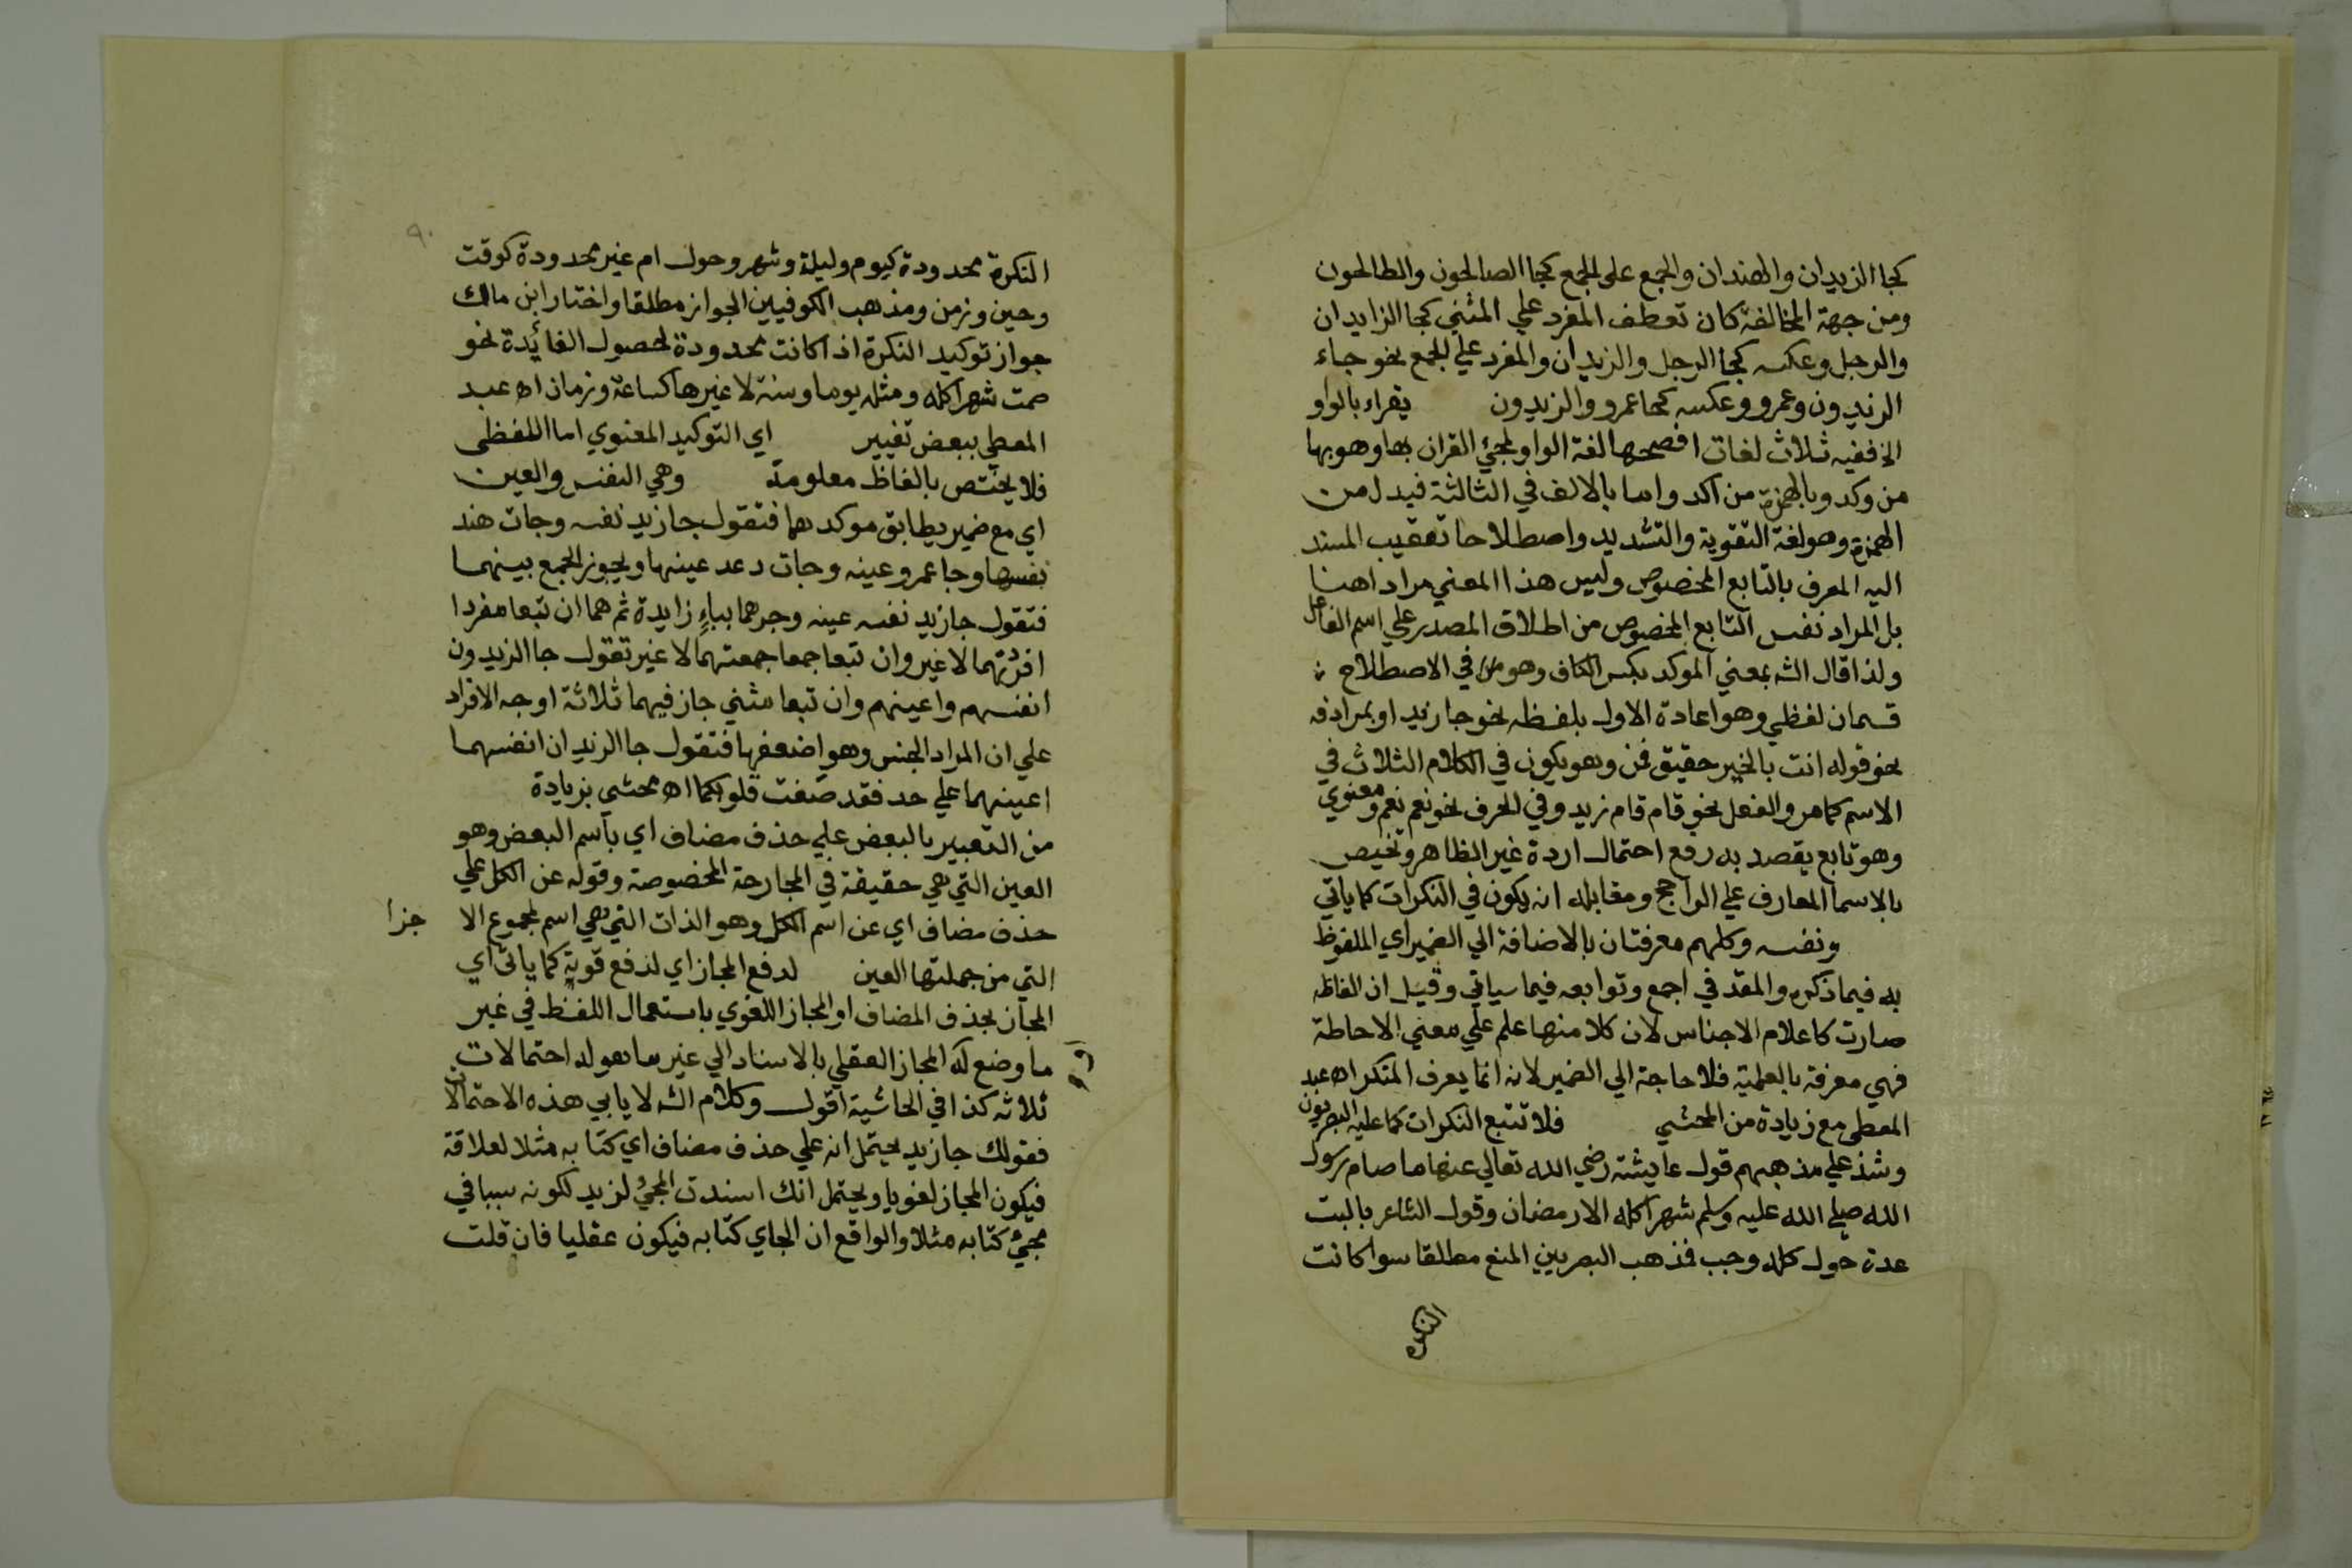 كجا الزيدان والهندان والجمع على الجمع كجا الصالحون والطالحون
ومن جهة المخالفة كان تعطف المفرد علي المثني كجا الزايدان
والرجل وعكسه كجا الرجل والزيدان والمفرد علي الجمع نحو جاء
الزيدون وعمرو وعكسه كجا عمرو والزيدون يقراء بالواو
الخ ففيه ثلاث لغات افصحها لغة الواو لمجئ القران بها وهو بها
من وكد وبالهمزة من اكد واما بالالف في الثالثة فبدل من
الهمزة وهو لغة التقوية والتشديد واصطلاحا تعقيب المسند
اليه المعرف بالتابع المخصوص وليس هذا المعني مرادا هنا
بل المراد نفس التابع المخصوص من اطلاق المصدر علي اسم الفاعل
ولذا قال الشه بمعني الموكد بكسر الكاف وهو في الاصطلاح
قسمان لفظي وهو اعادة الاول بلفظه نحو جا زيد او بمرادفه
نحو قوله انت بالخير حقيق قمن وهو يكون في الكلام الثلاث في
الاسم كما مر والفعل نحو قام قام زيد وفي الحرف نحو نعم نعم ومعنوي
وهو تابع يقصد به رفع احتمال اردة غير الظاهر وتخيص
بالاسما المعارف علي الراجح ومقابله انه يكون في النكرات كما ياتي
ونفسه وكلهم معرفتان بالاضافة الي الضمير اي الملفوظ
به فيما ذكره والمقد في اجمع وتوابعه فيما سياتي وقيل ان الفاظه
صارت كاعلام الاجناس لان كلا منها علم علي معني الاحاطة
فهي معرفة بالعلمية فلا حاجة الي الضمير لانه انما يعرف المنكر اه عبد
المعطي مع زيادة من المحشي فلا تتبع النكرات كما عليه البصريون
وشذ علي مذهبهم قول عايشة رضي الله تعالي عنها ما صام رسول
الله صلي الله عليه وسلم شهرا كله الا رمضان وقول الشاعر يا ليت
عدة حول كله رجب فمذهب البصريين المنع مطلقا سوا كانت
النكرة
٩٠
النكرة محدودة كيوم وليلة وشهر وحول ام غير محدودة كوقت
وحين وزمن ومذهب الكوفيين الجواز مطلقا واختار ابن مالك
جواز توكيد النكرة اذا كانت محدودة لحصول الفائدة نحو
صمت شهرا كله ومثله يوما وسنة لا غيرها كساعة وزمان اه عبد
المعطي ببعض تغيير اي التوكيد المعنوي اما اللفظي
فلا يختص بالفاظ معلومة وهي النفس والعين
اي مع ضمير يطابق موكدهما فتقول جا زيد نفسه وجات هند
نفسها وجا عمرو عينه وجات دعد عينها ويجوز الجمع بينهما
فتقول جا زيد نفسه عينه وجرهما بباء زايدة ثم هما ان تبعا مفردا
افردتهما لا غير وان تبعا جمعا جمعتهما لا غير تقول جا الزيدون
انفسهم واعينهم وان تبعا مثني جاز فيهما ثلاثة اوجه الافراد
علي ان المراد الجنس وهو اضعفها فتقول جا الزيدان انفسهما
اعينهما علي حد فقد صغت قلوبكما اه محشي بزيادة
من التعبير بالبعض علي حذف مضاف اي باسم البعض وهو
العين التي هي حقيقة في الجارحة المخصوصة وقوله عن الكل علي
حذف مضاف اي عن اسم الكل وهو الذات التي هي اسم لمجموع الا جزا
التي من جملتها العين لدفع المجاز اي لدفع قوية كما ياتي اي
المجاز بحذف المضاف او المجاز اللغوي باستعمال اللفظ في غير
ما وضع له المجاز العقلي بالاسناد الي غير ما هو له احتمالات
ثلاثه كذا في الحاشية اقول وكلام الشه لا يابي هذه الاحتمالات
فقولك جا زيد يحتمل انه علي حذف مضاف اي كتابه مثلا لعلاقة
فيكون المجاز لغويا ويحتمل انك اسندت المجئ لزيد لكونه سببا في
مجئ كتابه مثلا والواقع ان الجاي كتابه فيكون عقليا فان قلت